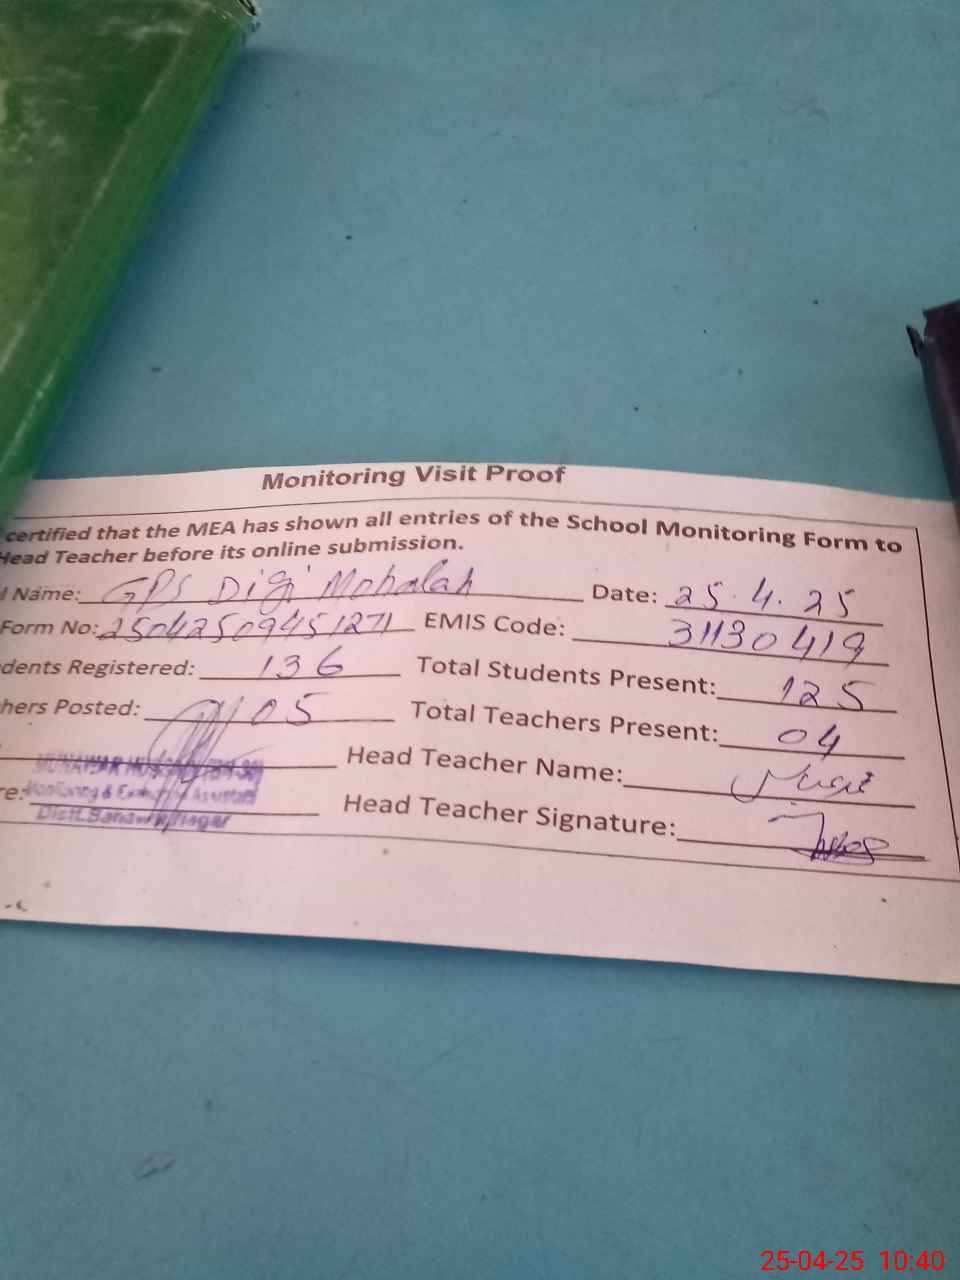 Monitoring Visit Proof
certified that the MEA has shown all entries of the School Monitoring Form to
Head Teacher before its online submission.
l Name: GPS Digi Mohalah Date: 25.4.25
Form No: 25042509451271 EMIS Code: 31130419
dents Registered: 136 Total Students Present: 125
hers Posted: 05 Total Teachers Present: 04
Head Teacher Name:
re: Head Teacher Signature:
Monitoring & Assistant
Distt.
25-04-25 10:40